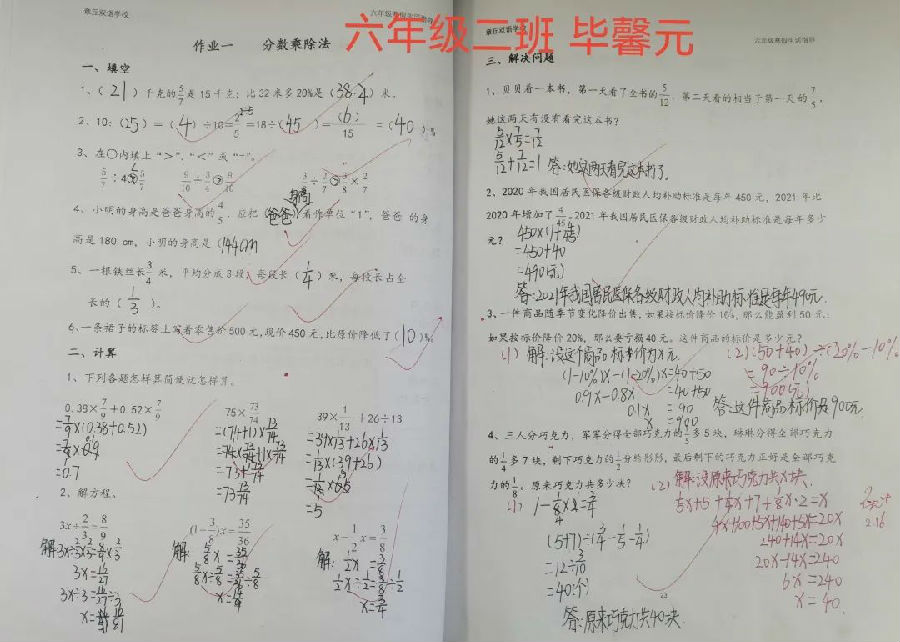 章丘双语学校
六年级二班 毕馨元
作业一 分数乘除法
一、填空
1、(21)千克的5/7是15千克；比32米多20%是(38.4)米。
2、10:(25)=(4)÷10=2/5=18÷(45)=(6)/15=(40)%
3、在○内填上">"、"<"或"="。
4、小明的身高是爸爸身高的4/5，应把(爸爸身高)看作单位"1"，爸爸的身
高是180 cm，小明的身高是(144cm
5、一根铁丝长3/4米，平均分成3段，每段长(1/4)米，每段长占全
长的(1/3)。
6、一条裙子的标签上写着零售价500元，现价450元，比原价降低了(10)%
二、计算
1、下列各题怎样算简便就怎样算。
0.38×7/9+0.52×7/9
=7/9×(0.38+0.52)
=7/9×0.9
=0.7
75×73/74
=(74+1)×73/74
=73+73/74
=73 73/74
39×1/13+26÷13
=39×1/13+26×1/13
=1/13×(39+26)
=5
2、解方程。
3x÷2/3=8/9
(1-3/8)x=35/36
x-1/2x=3/8
章丘双语学校
三、解决问题
1、贝贝看一本书，第一天看了全书的5/12，第二天看的相当于第一天的7/5，
她这两天有没有看完这本书？
5/12×7/5=7/12
5/12+7/12=1
答：她这两天看完这本书了。
2、2020年我国居民医保各级财政人均补助标准是每年450元，2021年比
2020年增加了4/45。2021年我国居民医保各级财政人均补助标准是每年多少
元？
450×(1+4/45)
=450+40
=490(元)
答：2021年我国居民医保各级财政人均补助标准是每年490元.
3、一件商品随季节变化降价出售，如果按标价降价10%，那么能盈利50元；
如果按标价降价20%，那么要亏损40元。这件商品的标价是多少元？
(1) 解：设这个商品标价为x元.
(1-10%)x-(1-20%)x=40+50
0.9x-0.8x=40+50
0.1x=90
x=900
(2)(50+40)÷(20%-10%)
=90÷10%
=900(元)
答：这件商品标价是900元.
4、三人分巧克力，军军分得全部巧克力的1/5多5块，琳琳分得全部巧克力
的1/4多7块，剩下巧克力的1/2分给彤彤，最后剩下的巧克力正好是全部巧克
力的1/8。原来巧克力共多少块？
(1) 1-1/8×2=3/4
(5+7)÷(3/4-1/5-1/4)
=12÷3/10
=40(个)
答：原来巧克力共40块.
(2) 解：设原来巧克力共x块.
1/5x+5+1/4x+7+1/8x·2=x
4x+100+5x+140+5x=20x
240+14x=20x
20x-14x=240
6x=240
x=40.